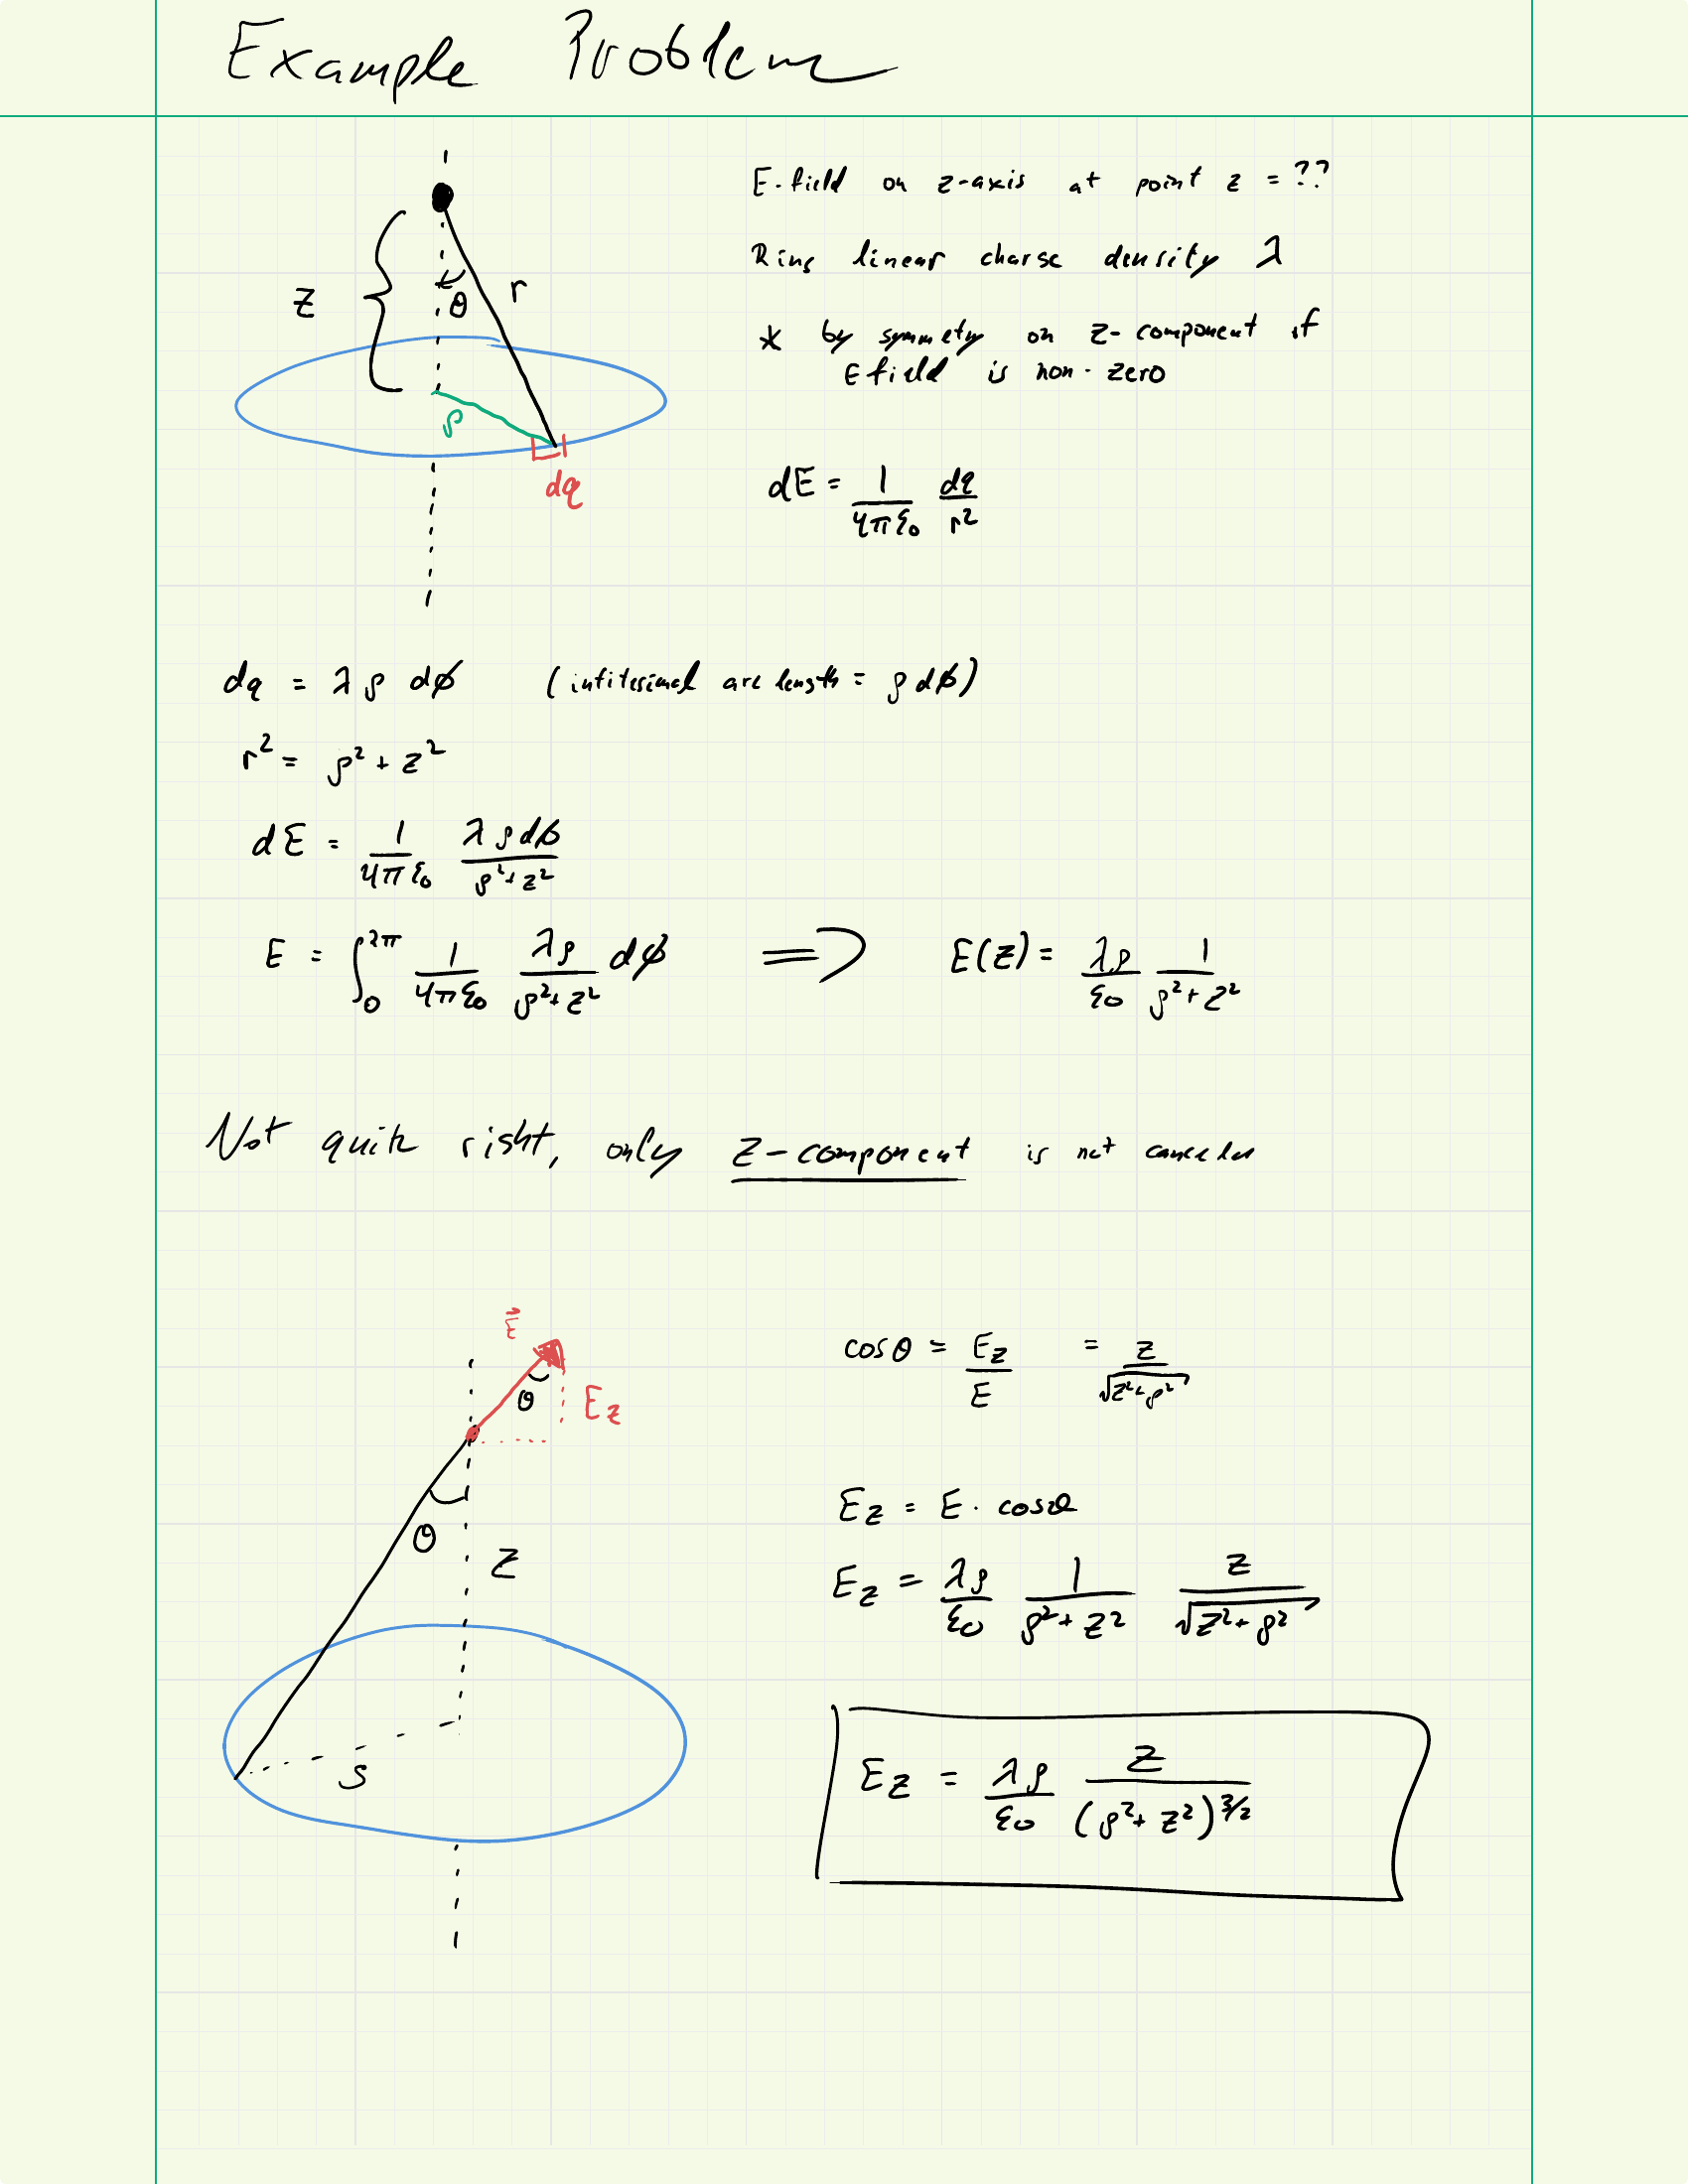 Example Problem
E-field on z-axis at point z = ??
Ring linear charge density λ
* by symmety on z-component of
E field is non-zero
z
θ
r
ρ
dq
dE = 1/(4πε₀) dq/r²
dq = λ ρ dφ (infitesimal arc length = ρ dφ)
r² = ρ² + z²
dE = 1/(4πε₀) λρdφ/(ρ²+z²)
E = ∫₀^2π 1/(4πε₀) λρ/(ρ²+z²) dφ ⟹ E(z) = λρ/ε₀ 1/(ρ²+z²)
Not quite right, only z-component is not canceled
E⃗
θ
E_z
θ
z
ρ
cosθ = E_z/E = z/√(z²+ρ²)
E_z = E · cosθ
E_z = λρ/ε₀ 1/(ρ²+z²) z/√(z²+ρ²)
E_z = λρ/ε₀ z/(ρ²+z²)^3/2